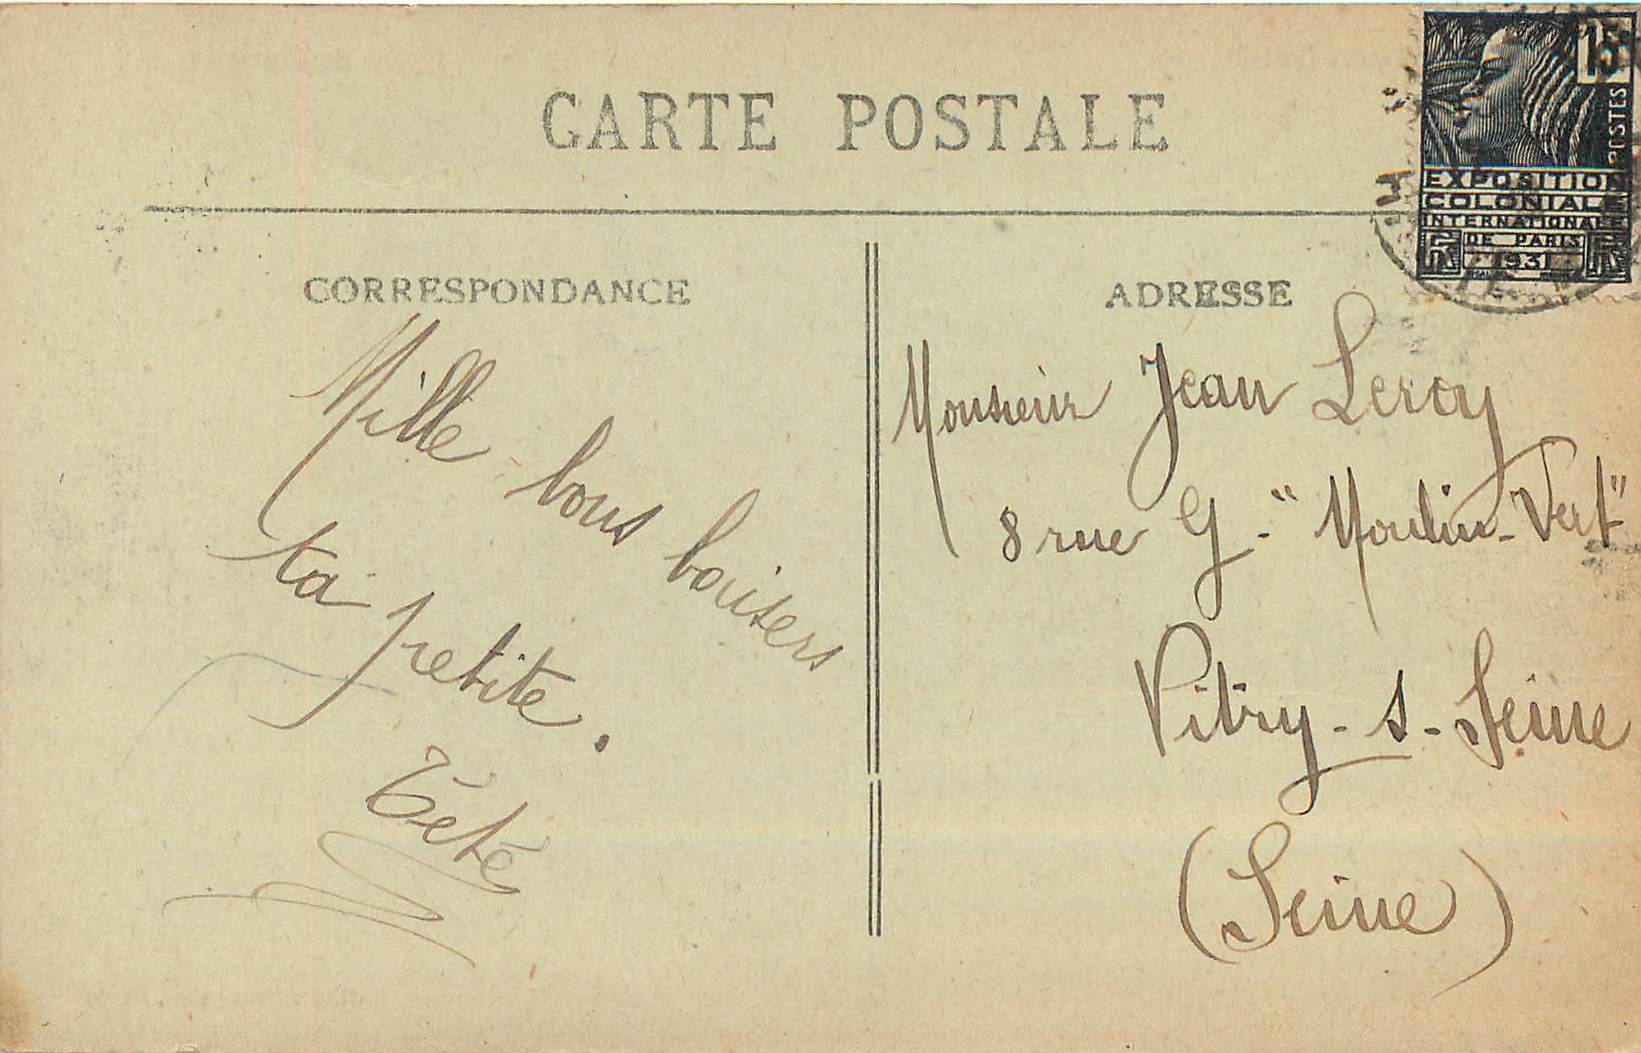 CARTE POSTALE
15
POSTES
EXPOSITION
COLONIALE
INTERNATIONALE
DE PARIS
1931
RF
CORRESPONDANCE
Mille bons baisers
ta petite.
Tété
ADRESSE
Monsieur Jean Leroy
8 rue G. "Moulin-Vert"
Vitry-s-Seine
(Seine)